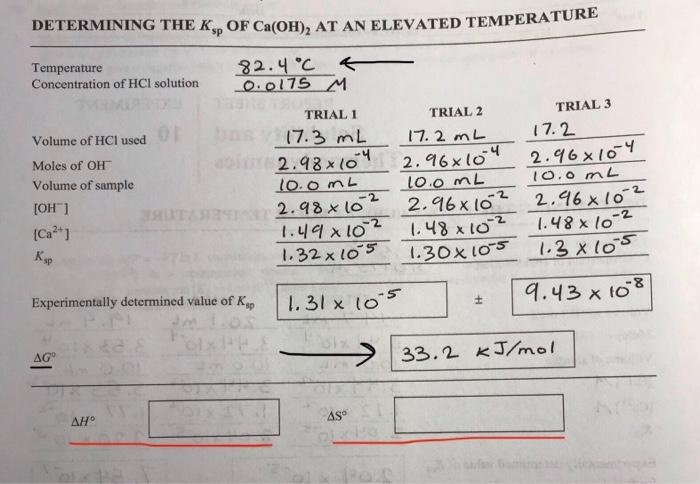 DETERMINING THE Ksp OF Ca(OH)₂ AT AN ELEVATED TEMPERATURE
Temperature 82.4 °C ←
Concentration of HCl solution 0.0175 M
TRIAL 1 TRIAL 2 TRIAL 3
Volume of HCl used 17.3 mL 17.2 mL 17.2
Moles of OH⁻ 2.98 x 10⁻⁴ 2.96 x 10⁻⁴ 2.96 x 10⁻⁴
Volume of sample 10.0 mL 10.0 mL 10.0 mL
[OH⁻] 2.98 x 10⁻² 2.96 x 10⁻² 2.96 x 10⁻²
[Ca²⁺] 1.49 x 10⁻² 1.48 x 10⁻² 1.48 x 10⁻²
Ksp 1.32 x 10⁻⁵ 1.30 x 10⁻⁵ 1.3 x 10⁻⁵
Experimentally determined value of Ksp 1.31 x 10⁻⁵ ± 9.43 x 10⁻⁸
ΔG° → 33.2 kJ/mol
ΔH° ΔS°